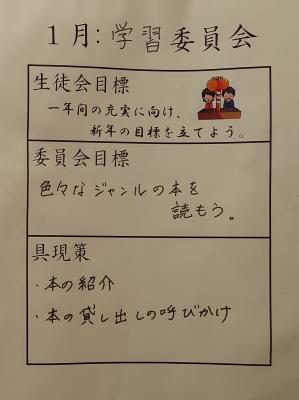 1月:学習委員会
生徒会目標
一年間の充実に向け、
新年の目標を立てよう。
委員会目標
色々なジャンルの本を
読もう。
具現策
・本の紹介
・本の貸し出しの呼びかけ